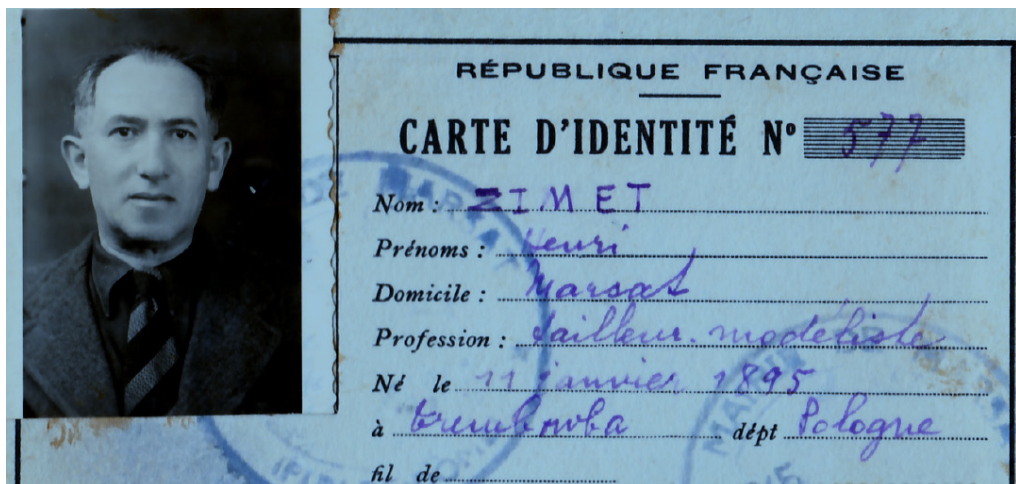 RÉPUBLIQUE FRANÇAISE
CARTE D'IDENTITÉ Nº 577
Nom : ZIMET
Prénoms : Henri
Domicile : Marsat
Profession : tailleur. modéliste
Né le 11 janvier 1895
à dépt Pologne
fil de